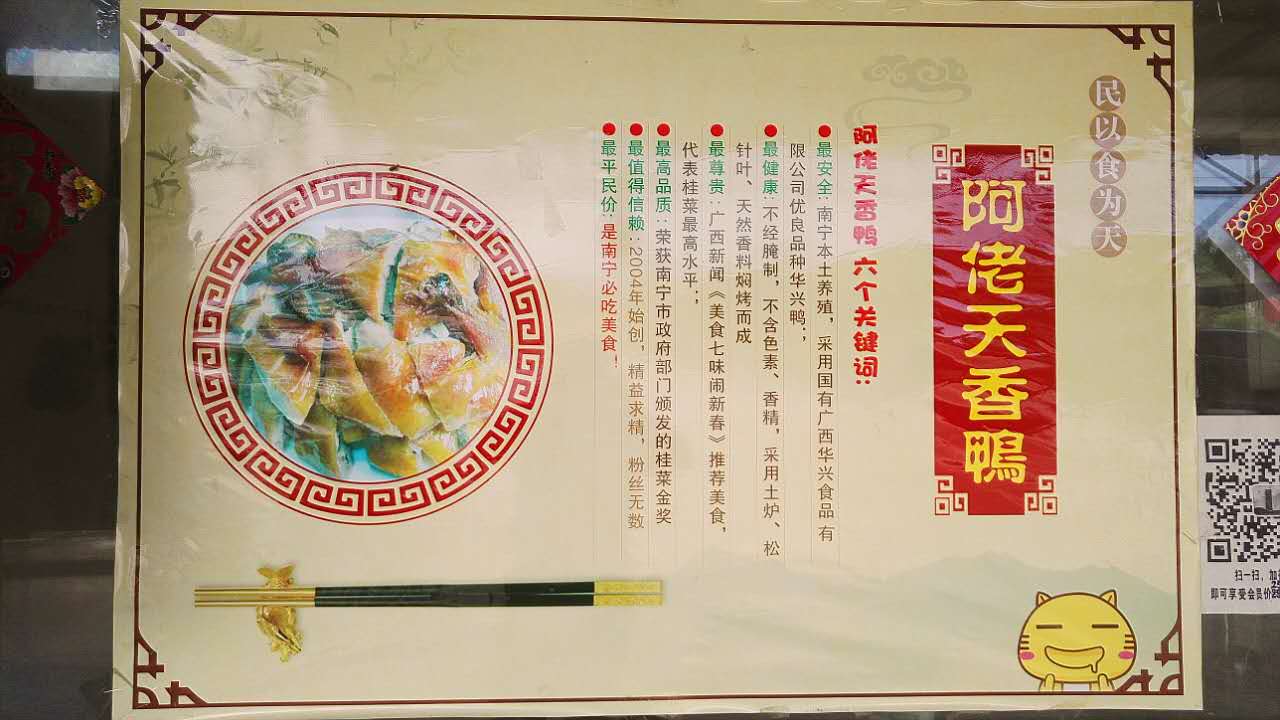 民以食为天
阿佬天香鴨
阿佬天香鸭 六个关键词:
最安全: 南宁本土养殖，采用国有广西华兴食品有
限公司优良品种华兴鸭；
最健康: 不经腌制，不含色素、香精，采用土炉、松
针叶、天然香料焖烤而成
最尊贵: 广西新闻《美食七味闹新春》推荐美食，
代表桂菜最高水平；
最高品质: 荣获南宁市政府部门颁发的桂菜金奖
最值得信赖: 2004年始创，精益求精，粉丝无数
最平民价: 是南宁必吃美食！
扫一扫，加
即可享受会员价